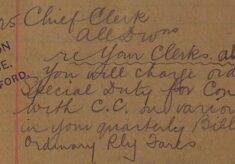 rs Chief Clerk
All Dvons
re Your Clerks. a
ON
You will charge ord
E.
Special Duty for Con
FORD.
with C.C. in variou
in your quarterly Bill
Ordinary Rly